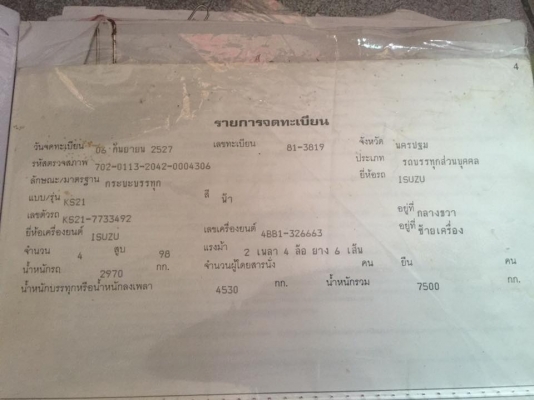 4
รายการจดทะเบียน
วันจดทะเบียน 06 กันยายน 2527 เลขทะเบียน 81-3819 จังหวัด นครปฐม
รหัสตรวจสภาพ 702-0113-2042-0004306 ประเภท รถบรรทุกส่วนบุคคล
ลักษณะ/มาตรฐาน กระบะบรรทุก ยี่ห้อรถ ISUZU
แบบ/รุ่น KS21 สี ฟ้า
เลขตัวรถ KS21-7733492 อยู่ที่ กลางขวา
ยี่ห้อเครื่องยนต์ ISUZU เลขเครื่องยนต์ 4BB1-326663 อยู่ที่ ซ้ายเครื่อง
จำนวน 4 สูบ 98 แรงม้า 2 เพลา 4 ล้อ ยาง 6 เส้น
น้ำหนักรถ 2970 กก. จำนวนผู้โดยสารนั่ง คน ยืน คน
น้ำหนักบรรทุกหรือน้ำหนักลงเพลา 4530 กก. น้ำหนักรวม 7500 กก.